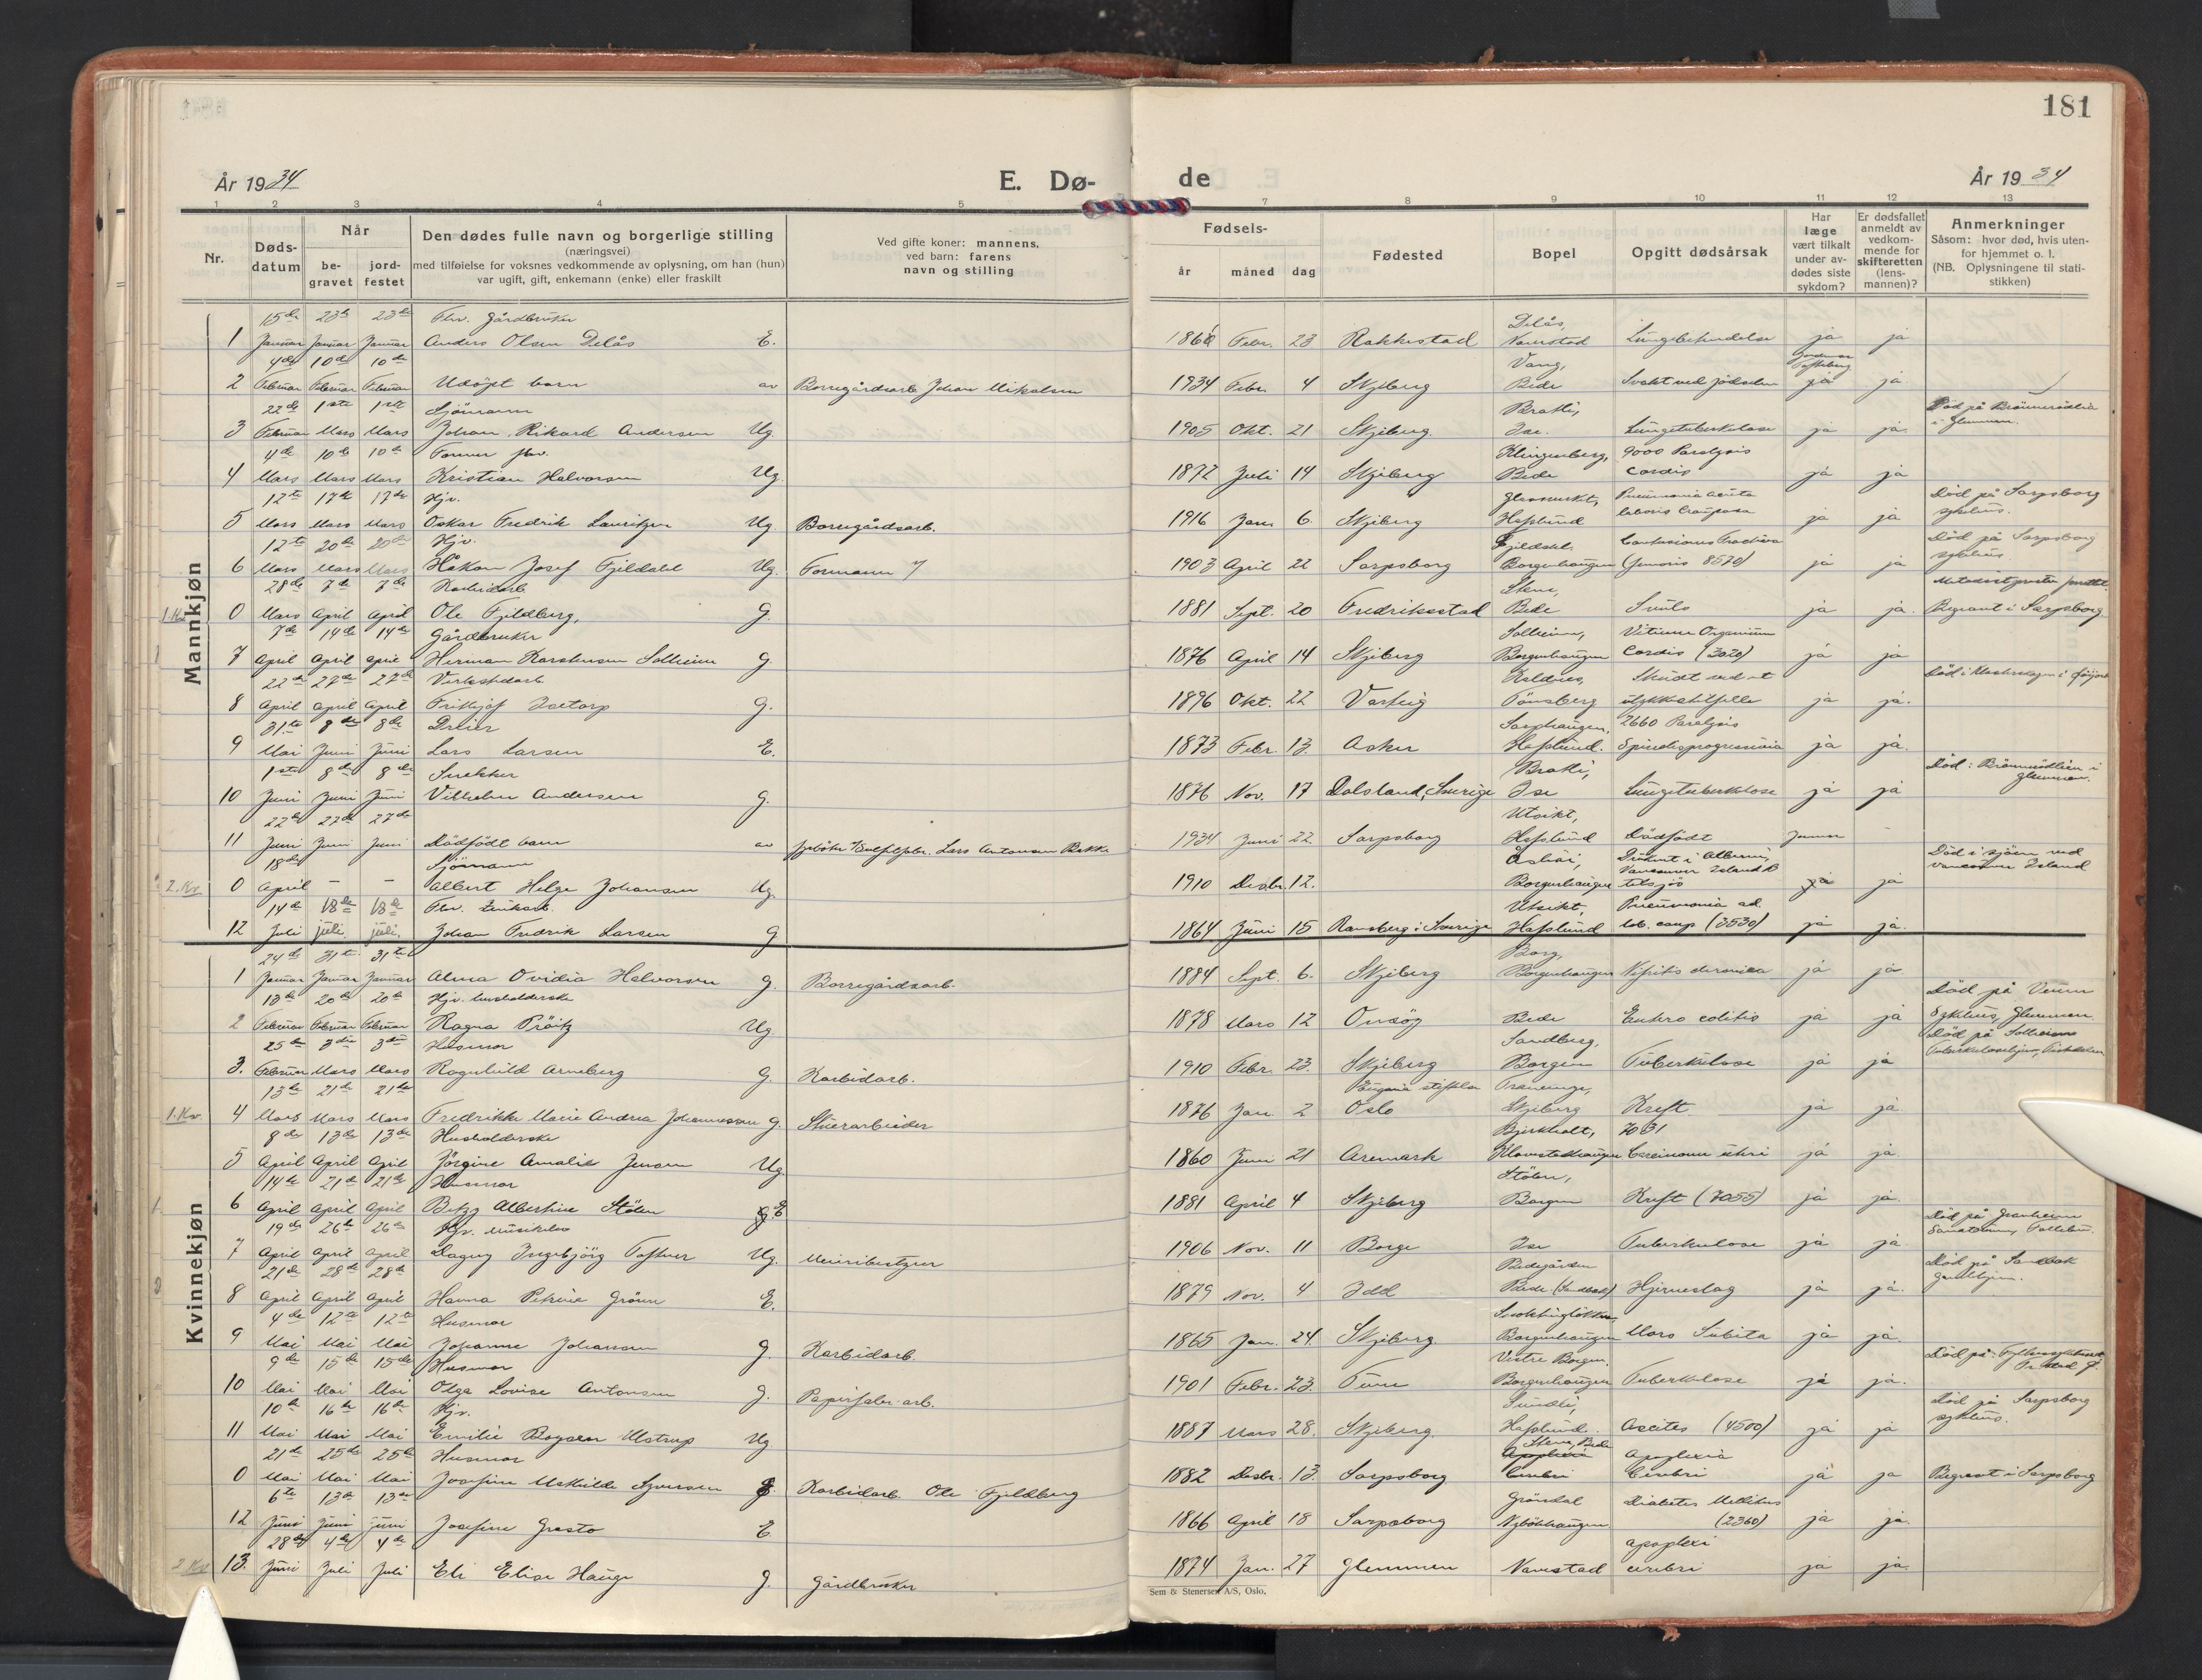 181
År 1934 E. Dø- de År 1934
1 2 3 4 5 7 8 9 10 11 12 13
Nr.
Døds-
datum
Når
be-
gravet
jord-
festet
Den dødes fulle navn og borgerlige stilling
(næringsvei)
med tilføielse for voksnes vedkommende av oplysning, om han (hun)
var ugift, gift, enkemann (enke) eller fraskilt
Ved gifte koner: mannens,
ved barn: farens
navn og stilling
Fødsels-
år måned dag
Fødested
Bopel
Opgitt dødsårsak
Har
læge
vært tilkalt
under av-
dødes siste
sykdom?
Er dødsfallet
anmeldt av
vedkom-
mende for
skifteretten
(lens-
mannen)?
Anmerkninger
Såsom: hvor død, hvis uten-
for hjemmet o. l.
(NB. Oplysningene til stati-
stikken)
Mannkjøn
15de 23de 23de Fhv. Gårdbruker Delås,
1 Januar Januar Januar Anders Olsen Delås E. 1866 Febr. 23 Rakkestad Navestad ja ja
4de 10de 10de Vang,
2 Februar Februar Februar Udöpt barn av Borregårdsarb. Johan Mikalsen 1934 Febr. 4 Skjeberg Bede Svakt ved födselen ja ja
22de 1ste 1ste Sjömann
3 Februar Mars Mars Johan Rikard Andersen Ug. 1905 Okt. 21 Skjeberg Ise. Lungetuberkulose ja ja. i Glemmen.
4de 10de 10de Klingenberg, 9000 Paralysis
4 Mars Mars Mars Kristian Halvorsen Ug. 1872 Juli 14 Skjeberg Bede Cordis ja ja
12te 17de 17de Hjv. Glassverket, Pneumonia acuta Död på Sarpsborg
5 Mars Mars Mars Oskar Fredrik Lauritzen Ug. Borregårdsarb. 1916 Jan. 6. Skjeberg Hafslund ja ja sykehus.
12te 20de 20de Hjv. Död på Sarpsborg
6 Mars Mars Mars Håkon Josef Fjeldahl Ug. Formann 1903 April 22 Sarpsborg Borgenhaugen (8570) ja ja sykehus.
28de 7de 7de Karbidarb. Stene,
0 Mars April April Ole Fjeldberg, G. 1881 Sept. 20 Fredriksstad Bede ja ja. Begravet i Sarpsborg.
7de 14de 14de Gårdbruker Solheim, Vitium Organicum
7 April April April Herman Karstensen Solheim G. 1876 April 14 Skjeberg Borgenhaugen Cordis (3020) ja ja
22de 27de 27de Verkstedarb. Kaldnes,
8 April April April Fritjof Isetorp G. 1896 Okt. 22 Varteig Tönsberg ulykkestilfelle ja ja.
31te 8de 8de Dreier 2660 Paralysis
9 Mai Juni Juni Lars Larsen E. 1873 Febr. 13. Asker Hafslund. ja ja.
1ste 8de 8de Snekker
10 Juni Juni Juni Vilhelm Andersen G. 1876 Nov. 17 Dalsland, Sverige Ise Lungetuberkulose ja ja
22de 27de 27de Utsikt,
11 Juni Juni Juni Dödfödt barn av Lars Antonsen Bakke 1934 Juni 22 Sarpsborg Hafslund Dödfödt
18de Sjömann Död i sjöen ved
2. Kv. 0 April – – Albert Helge Johansen Ug. 1910 Desbr. 12. Borgenhaugen ja ja Vancouver Island
14de 18de 18de Fhv. Utsikt, Pneumonia ad.
12 Juli juli. juli. Johan Fredrik Larsen G 1864 Juni 15 Ransberg i Sverige Hafslund (3530) ja ja.
Kvinnekjøn
24de 31te 31te Borg,
1 Januar Januar Januar Alma Ovidia Halvorsen G. Borregårdsarb. 1884 Sept. 6. Skjeberg Borgenhaugen Nefritis chronica ja ja
13de 20de 20de Hjv. husholderske Död på Veum
2 Februar Februar Februar Ragna Pröitz Ug. 1878 Mars 12 Onsöy Bede Entero colitis ja ja Sykehus, Glemmen.
25de 3die 3die Husmor Sandberg, Död på Solheim
3. Februar Mars Mars Ragnhild Arneberg G. Karbidarb. 1910 Febr. 23. Skjeberg Borgen Tuberkulose ja ja
13de 21de 21de
1. Kv. 4 Mars Mars Mars Fredrikke Marie Andrea Johannessen G. Stuerarbeider 1876 Jan. 2 Oslo Skjeberg Kreft ja ja
8de 13de 13de Husholderske Bjerkholt,
5 April April April Jörgine Amalie Jensen Ug. 1860 Juni 21 Aremark Carcinom uteri ja ja
14de 21de 21de Husmor Stölen,
6 April April April Betzy Albertine Stölen E 1881 April 4 Skjeberg Borgen Kreft (7055) ja ja.
19de 26de 26de Död på Granheim
7 April April April Dagny Ingebjörg Toftener Ug. Meieribestyrer 1906 Nov. 11 Borge Ise Tuberkulose ja ja
21de 28de 28de Bedegården Död på Sandbak
8 April April April Hanna Petrine Grönn E. 1879 Nov. 4 Idd Bede (Sandbak) Hjerneslag ja ja. gamlehjem.
4de 12te 12te Husmor
9 Mai Mai Mai Johanne Johansen G. Karbidarb. 1865 Jan. 24. Skjeberg Borgenhaugen Mors Subita ja ja.
9de 15de 15de Husmor Vestre Borgen.
10 Mai Mai Mai Olga Lovise Antonsen G. Papirfabr. arb. 1901 Febr. 23. Tune Borgenhaugen Tuberkulose ja ja.
10de 16de 16de Hjv. Sundli, Död på Sarpsborg
11 Mai Mai Mai Emilie Bogsen Ulstrup Ug 1887 Mars 28. Skjeberg. Hafslund. Ascites (4500) ja ja sykehus.
21de 25de 25de Husmor Stene, Bede Apoplexia
0 Mai Mai Mai Josefine Mathilde Syversen Karbidarb. Ole Fjeldberg 1882 Desbr. 13. Sarpsborg Cerebri Cerebri ja ja Begravet i Sarpsborg
6te 13de 13de Gröndal Diabetes Mellitus
12 Juni Juni juni Josefine Grasto E. 1866 April 18 Sarpsborg (2360) ja ja.
28de 4de 4de apoplexi
2 Kv. 13. Juni Juli Juli Eli Elise Hauge G. Gårdbruker 1874 Jan. 27 Glemmen Navestad cerebri ja ja.
Sem & Stenersen A/S, Oslo.